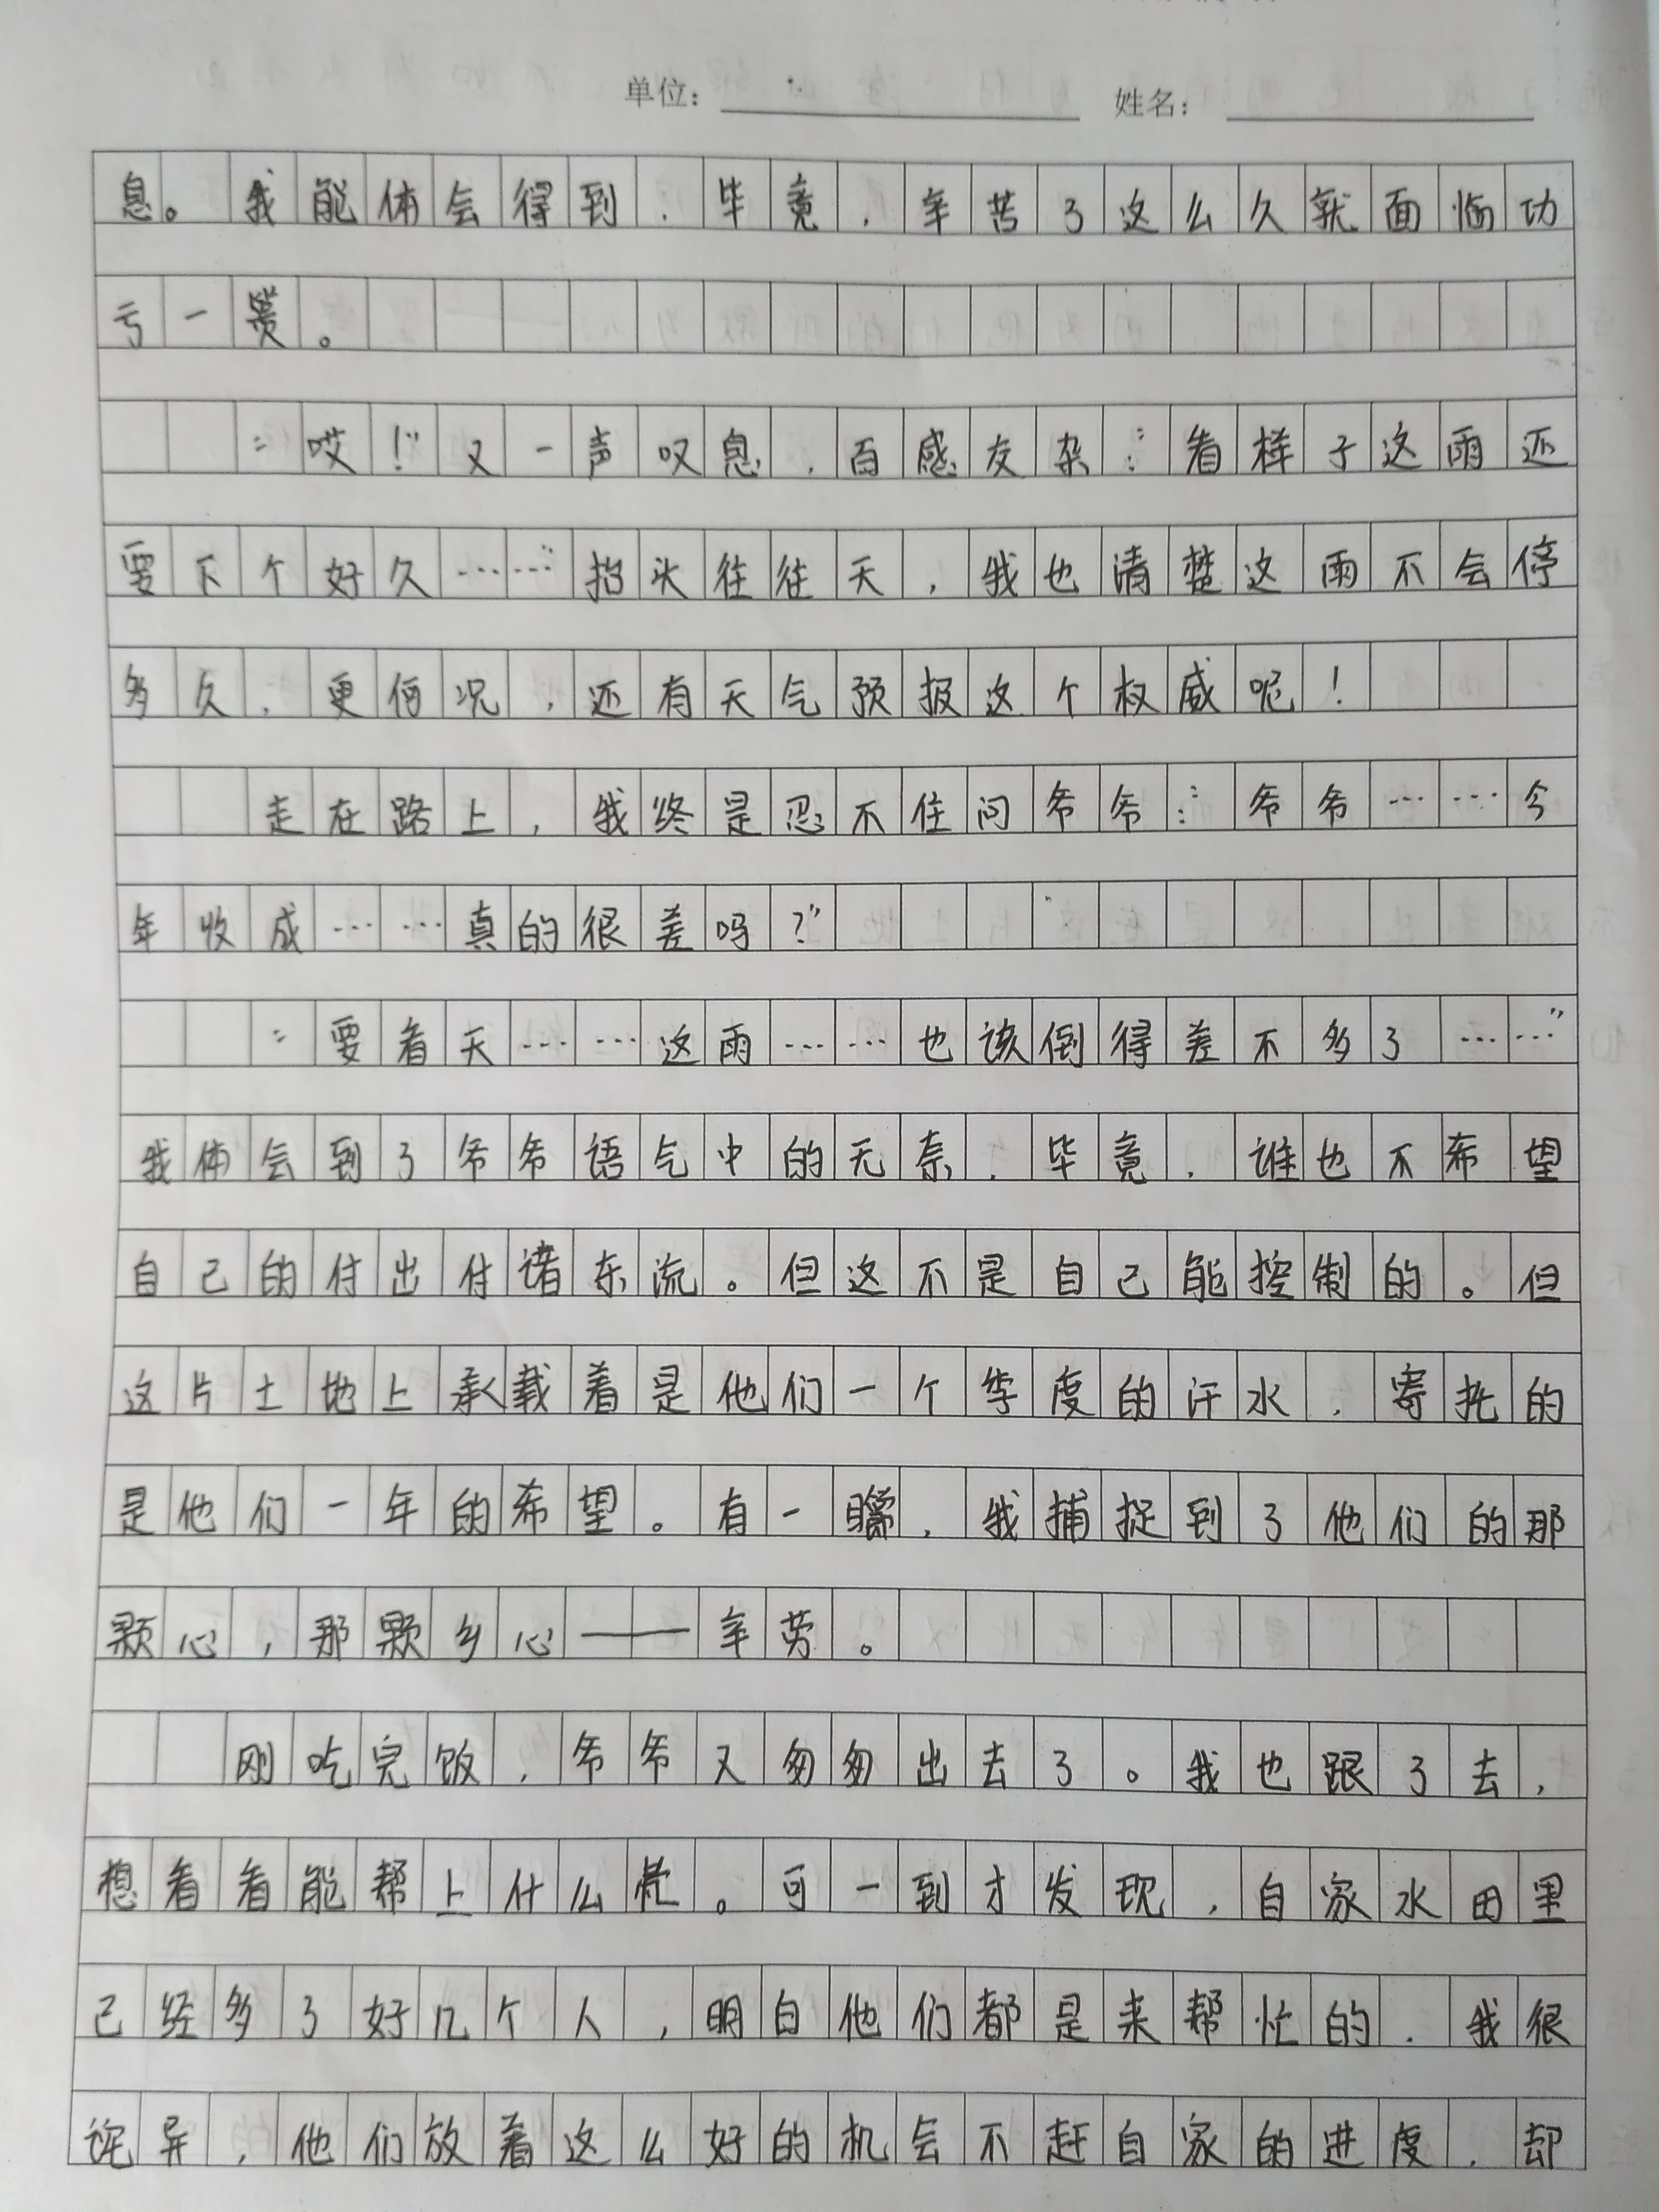 单位： 姓名：
息。我能体会得到，毕竟，辛苦了这么久就面临功
亏一篑。
“哎！”又一声叹息，百感交杂：“看样子这雨还
要下个好久……”抬头往往天，我也清楚这雨不会停
多久，更何况，还有天气预报这个权威呢！
走在路上，我终是忍不住问爷爷：“爷爷……今
年收成……真的很差吗？”
“要看天……这雨……也该倒得差不多了……”
我体会到了爷爷语气中的无奈，毕竟，谁也不希望
自己的付出付诸东流。但这不是自己能控制的。但
这片土地上承载着是他们一个季度的汗水，寄托的
是他们一年的希望。有一瞬，我捕捉到了他们的那
颗心，那颗乡心——辛劳。
刚吃完饭，爷爷又匆匆出去了。我也跟了去，
想看看能帮上什么忙。可一到才发现，自家水田里
已经多了好几个人，明白他们都是来帮忙的，我很
诧异，他们放着这么好的机会不赶自家的进度，却